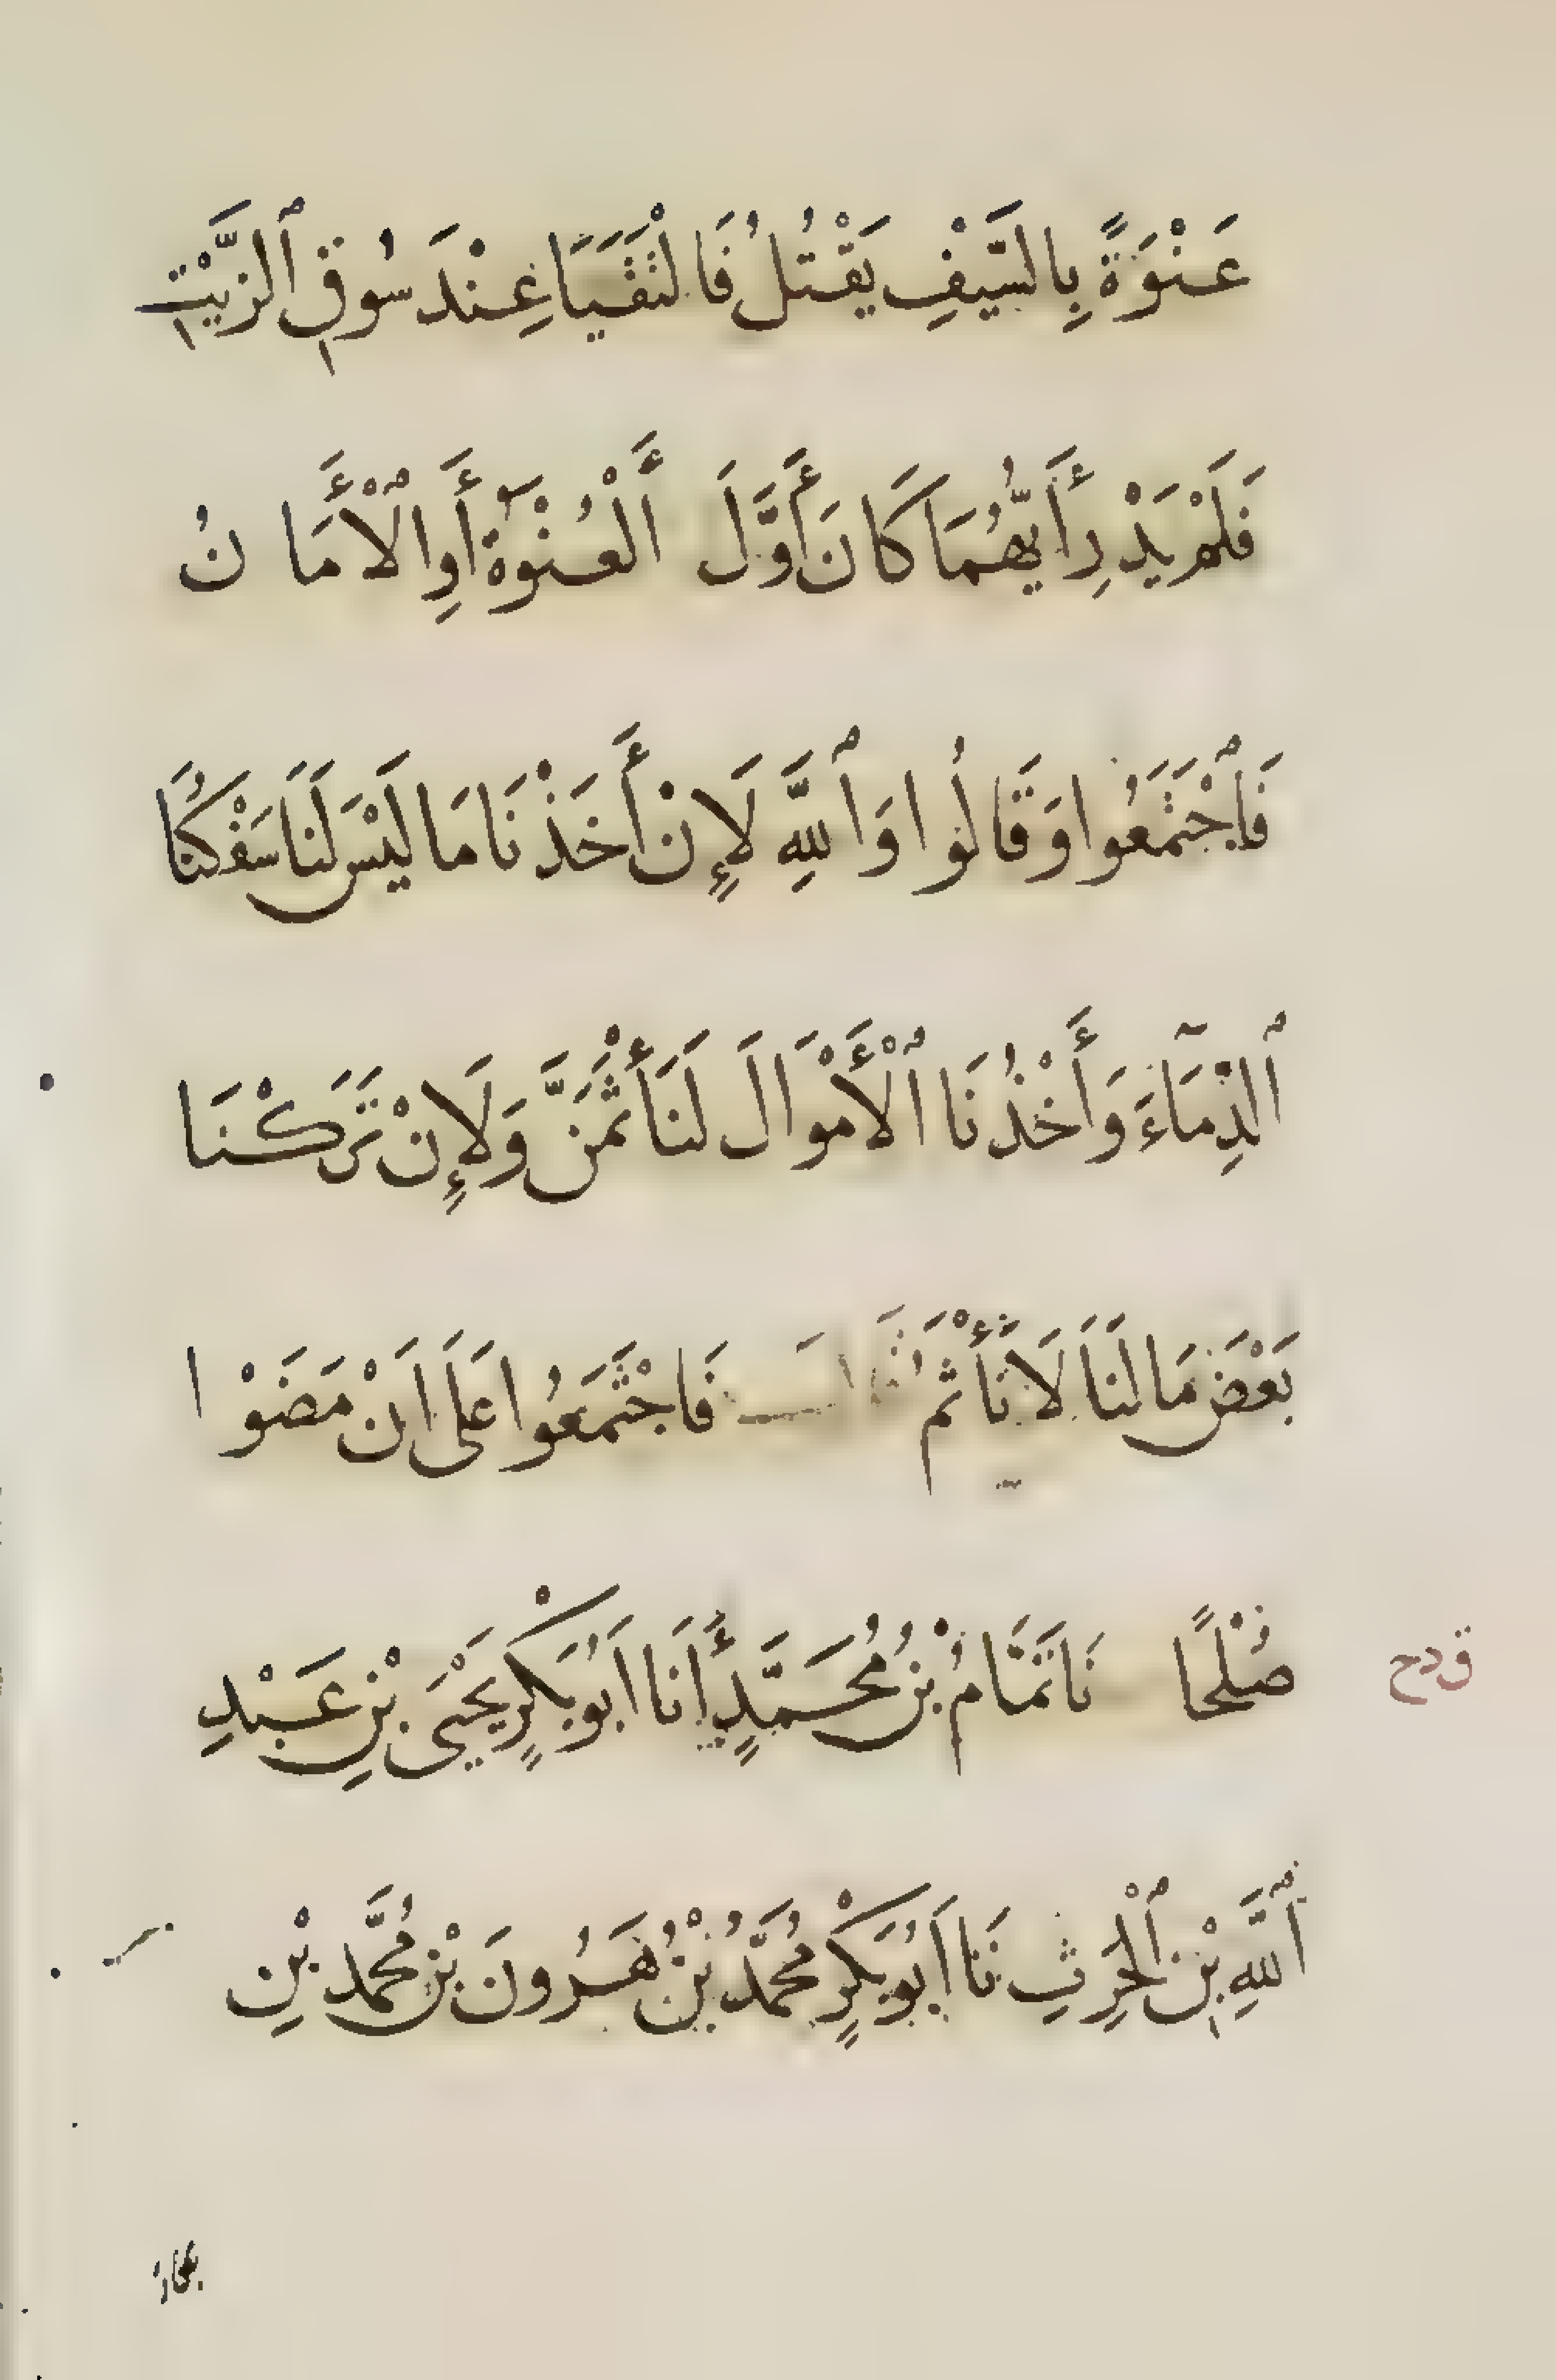 عَنْوَةً بِالسَّيْفِ يَقْتُلُ فَالْتَقَيَا عِنْدَ سُوقِ ٱلزَّيْتِ
فَلَمْ يَدْرِ أَيُّهُمَا كَانَ أَوَّلَ أَلْعُنْوَةُ أَوِ ٱلْأَمَانُ
فَٱجْتَمَعُوا وَقَالُوا وَٱللَّهِ لَإِنْ أَخَذْنَا مَا لَيْسَ لَنَا سَفَكْنَا
ٱلدِّمَآءَ وَأَخْذُنَا ٱلْأَمْوَالَ لَنَأْثَمَنَّ وَلَإِنْ تَرَكْنَا
بَعْضَ مَا لَنَا لَا نَأْثَمُ فَاجْتَمَعُوا عَلَى اَنْ مَضَوْا
صُلْحًا نَا تَمَّامُ بْنُ مُحَمَّدٍ أَنَا اَبُو بَكْرٍ يَحْيَى بْنِ عَبْدِ
ق دح
ٱللَّهِ بْنِ ٱلْحَرِثِ نَا اَبُو بَكْرٍ مُحَمَّدُ بْنُ هَرُونَ بْنِ مُحَمَّد بْنِ